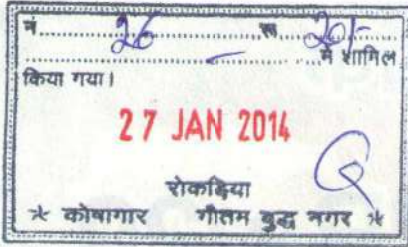 नं.......26.......रू...20/-...
..............................में शामिल
किया गया।
27 JAN 2014
रोकड़िया
* कोषागार गौतम बुद्ध नगर *